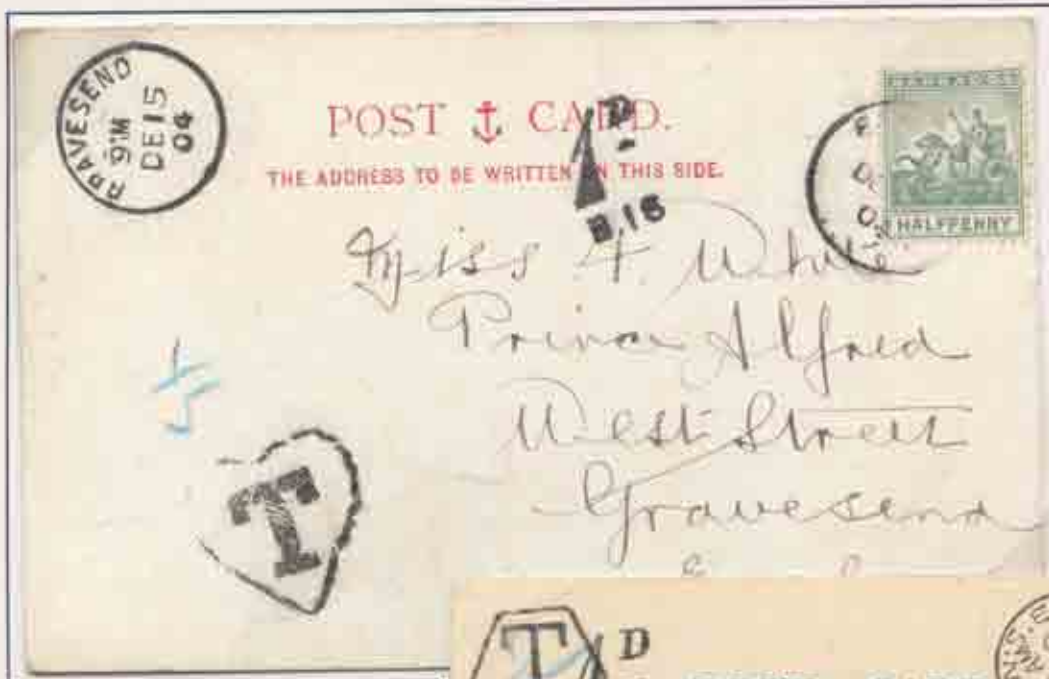 GRAVESEND
9 PM
DE 15
04
POST CARD.
THE ADDRESS TO BE WRITTEN ON THIS SIDE.
1D.
B.16
HALFPENNY
Miss F. White
Prince Alfred
West Street
Gravesend
T
T
D